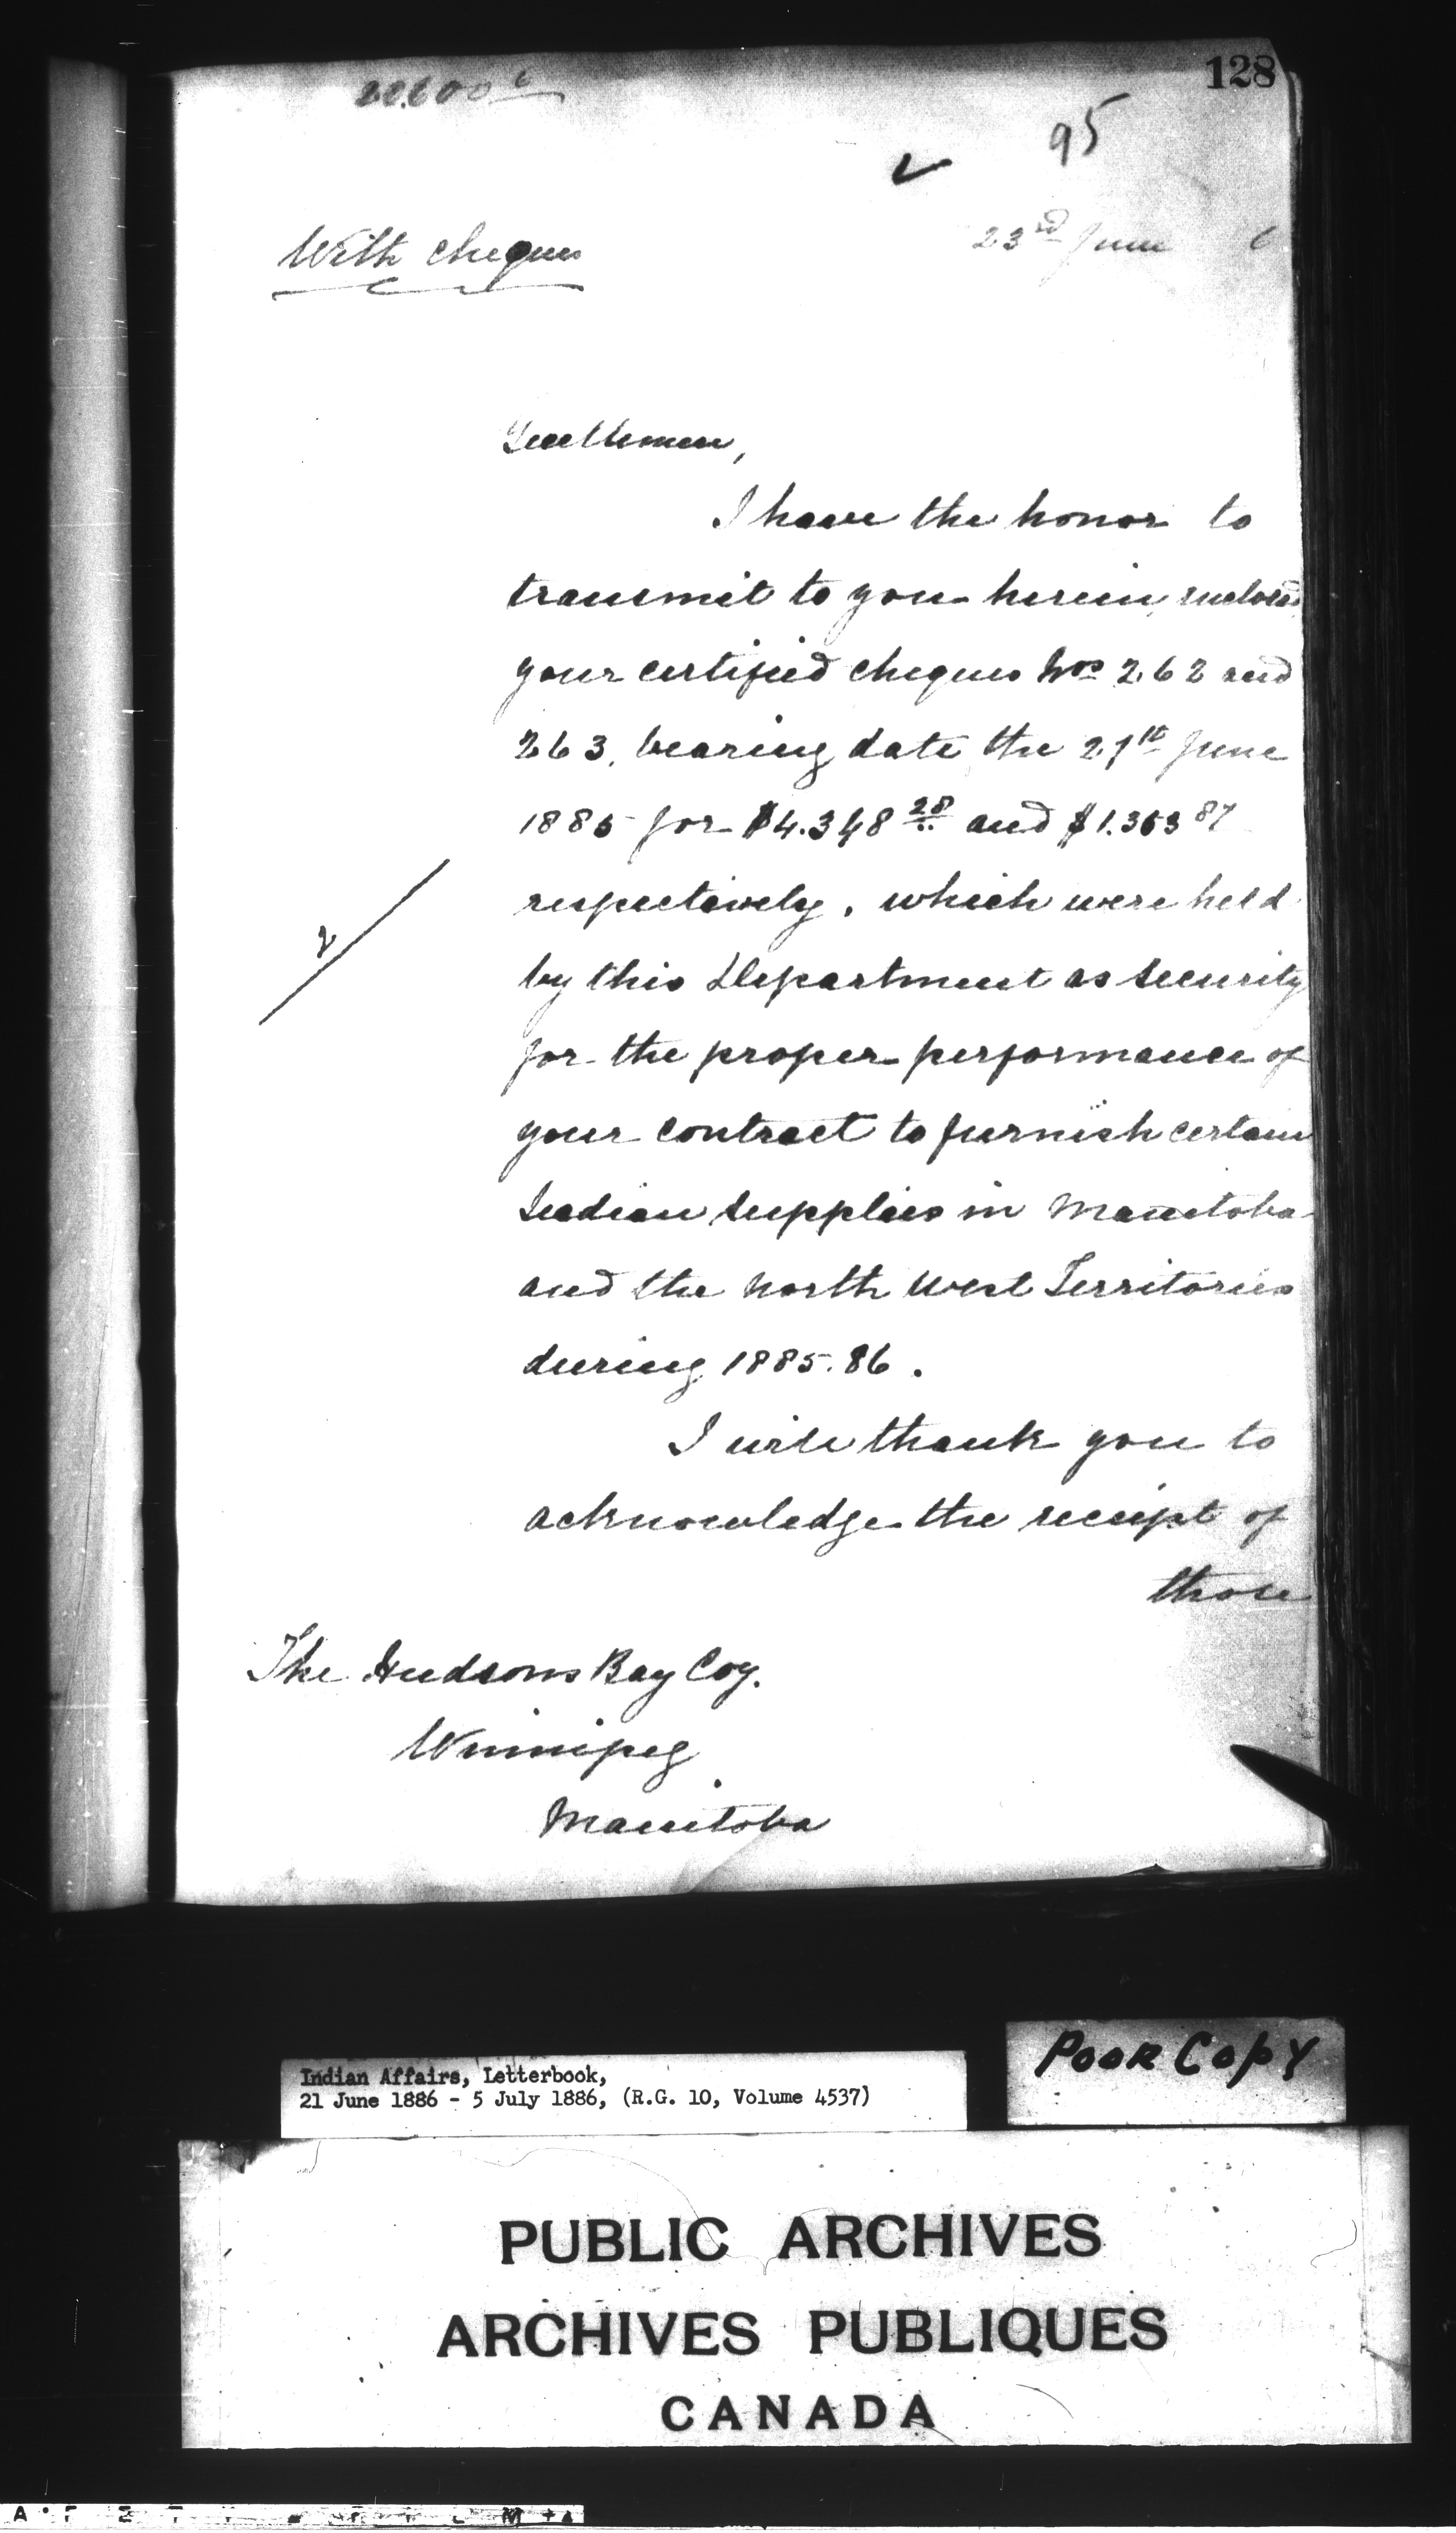 128
95
With cheques
23rd June 6
Gentlemen,
I have the honor to
transmit to you herein, enclosed
your certified cheques Nos 262 and
263, bearing date the 21st June
1885 for $4.348 28 and $1.353 87
respectively, which were held
by this Department as security
for the proper performance of
your contract to furnish certain
Indian supplies in Manitoba
and the North West Territories
during 1885.86.
I will thank you to
acknowledge the receipt of
those
The Hudsons Bay Coy.
Winnipeg
Manitoba
Poor Copy
Indian Affairs, Letterbook,
21 June 1886 - 5 July 1886, (R.G. 10, Volume 4537)
PUBLIC ARCHIVES
ARCHIVES PUBLIQUES
CANADA